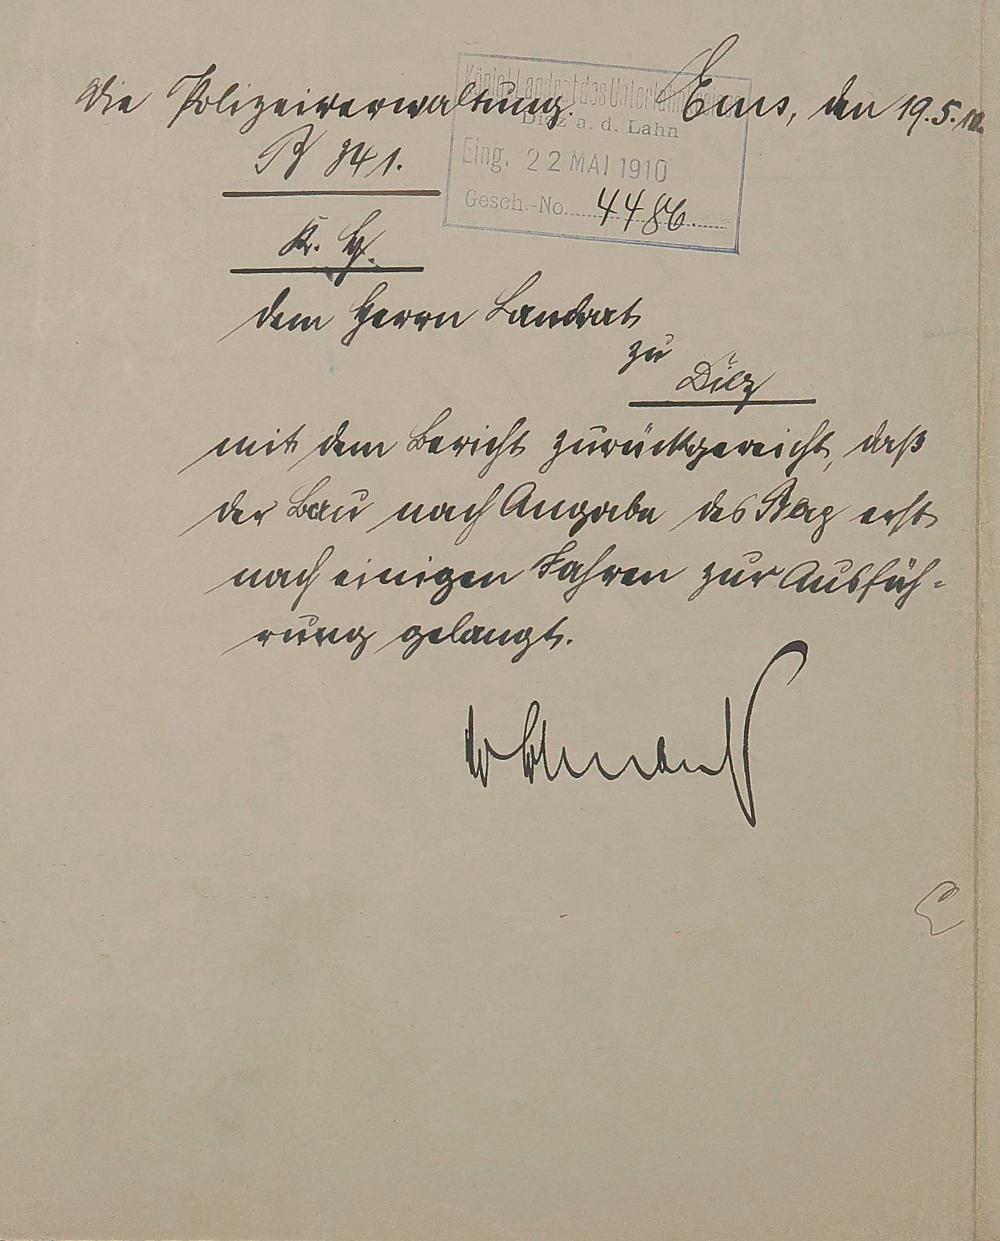 Die Polizeiverwaltung. Ems, den 19.5.10.
Königl. Landrat des Unterlahnkreises
Diez a. d. Lahn
Eing. 22 MAI 1910
Gesch.-No. 4486.
341.
K. H.
dem Herrn Landrat
zu
Diez
mit dem Bericht zurückgereicht, daß
der Bau nach Angabe des erst
nach einigen Jahren zur Ausfüh-
rung gelangt.